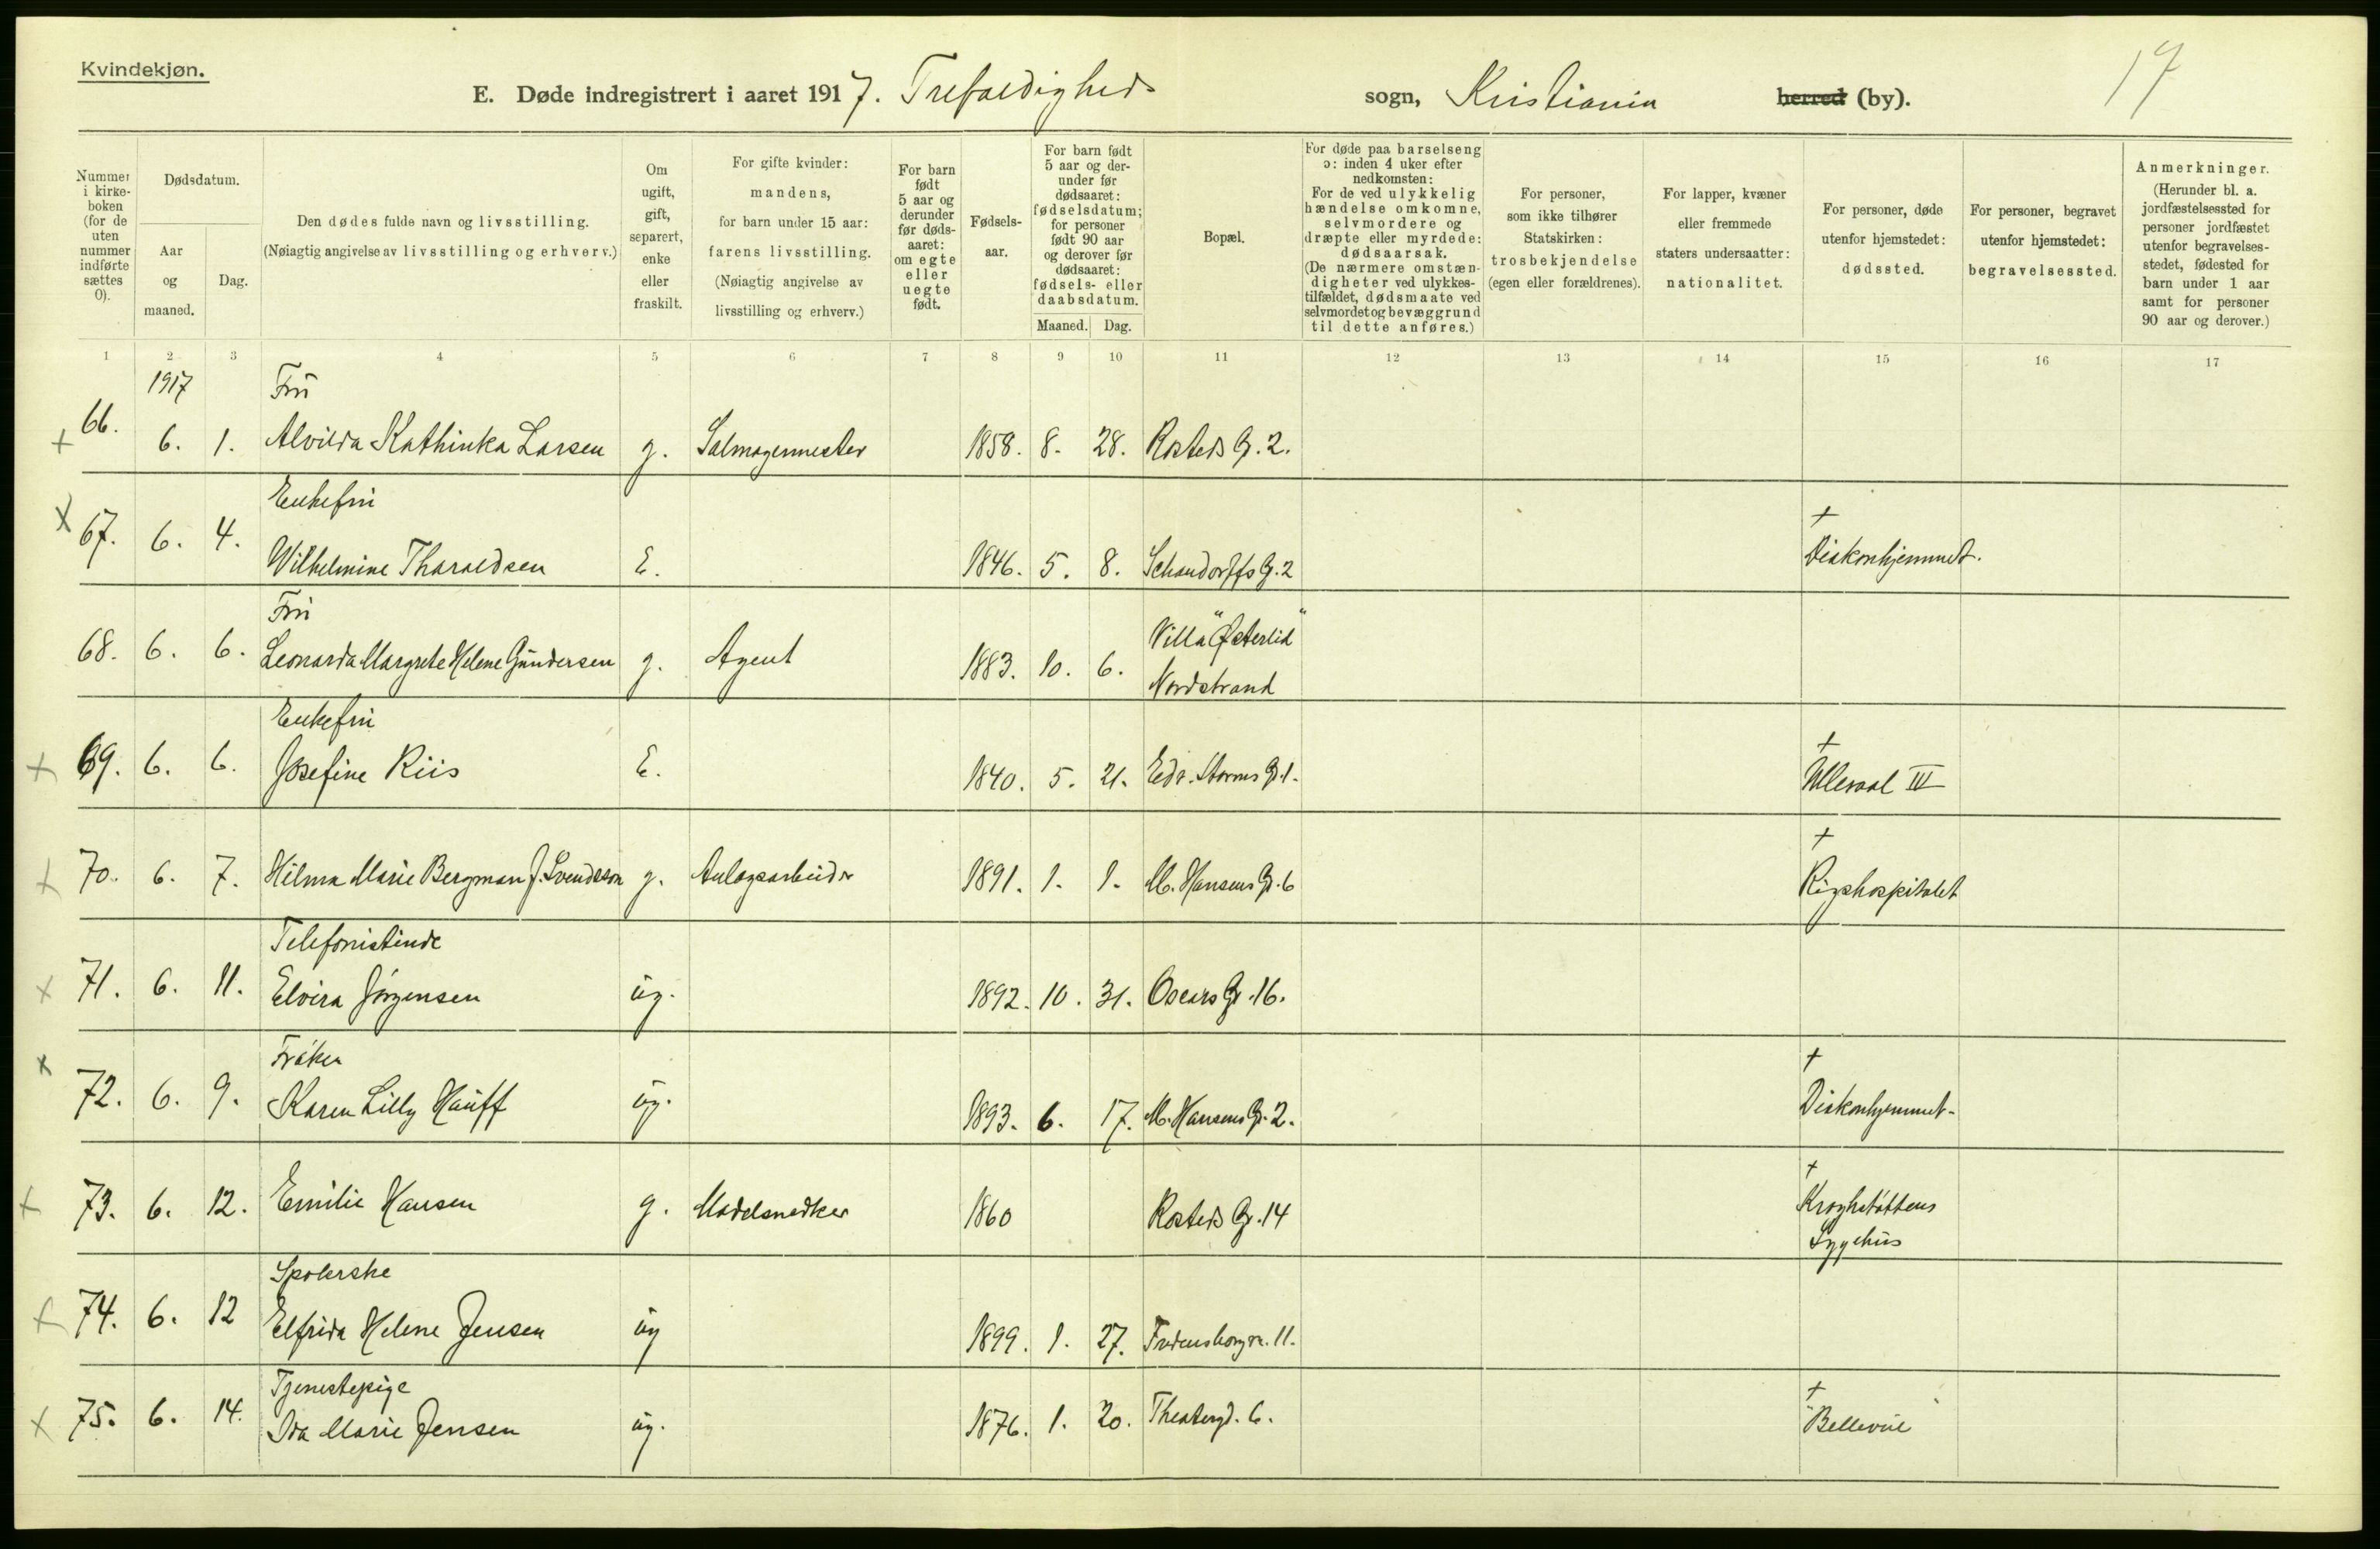 Kvindekjøn.
17
E. Døde indregistrert i aaret 1917. Trefoldigheds sogn, Kristiania herred (by).
Nummer i kirkeboken (for de uten nummer indførte sættes 0).
Dødsdatum.
Aar og maaned.
Dag.
Den dødes fulde navn og livsstilling.
(Nøiagtig angivelse av livsstilling og erhverv.)
Om ugift, gift, separert, enke eller fraskilt.
For gifte kvinder: mandens, for barn under 15 aar: farens livsstilling.
(Nøiagtig angivelse av livsstilling og erhverv.)
For barn født 5 aar og derunder før dødsaaret: om egte eller uegte født.
Fødselsaar.
For barn født 5 aar og derunder før dødsaaret: fødselsdatum; for personer født 90 aar og derover før dødsaaret: fødsels- eller daabsdatum.
Maaned. Dag.
Bopæl.
For døde paa barselseng ɔ: inden 4 uker efter nedkomsten:
For de ved ulykkelig hændelse omkomne, selvmordere og dræpte eller myrdede: dødsaarsak.
(De nærmere omstændigheter ved ulykkestilfældet, dødsmaate ved selvmordet og bevæggrund til dette anføres.)
For personer, som ikke tilhører Statskirken: trosbekjendelse (egen eller forældrenes).
For lapper, kvæner eller fremmede staters undersaatter: nationalitet.
For personer, døde utenfor hjemstedet: dødssted.
For personer, begravet utenfor hjemstedet: begravelsessted.
Anmerkninger.
(Herunder bl. a. jordfæstelsessted for personer jordfæstet utenfor begravelsesstedet, fødested for barn under 1 aar samt for personer 90 aar og derover.)
1 2 3 4 5 6 7 8 9 10 11 12 13 14 15 16 17
1917 Frü
+ 66. 6. 1. Alvilda Kathinka Larsen g. Salmagermester 1858. 8. 28. Rosteds G. 2.
Enkefrü
x 67. 6. 4. Wilhelmine Tharaldsen E. 1846. 5. 8. Schandorffs G. 2 + Diakonhjemmet.
Frü
68. 6. 6. Leonarda Margrete Helene Gündersen g. Agent 1883. 10. 6. Villa "Østerlid" Nordstrand
Enkefrü
+ 69. 6. 6. Josefine Riis E. 1840. 5. 21. Edv. Storms G. 1. + Ullevaal III
+ 70. 6. 7. Hilma Marie Bergman f. Svendsson g. Anlægsarbeider 1891. 1. 1. M. Hansens G. 6 + Rigshospitalet
Telefonistinde
x 71. 6. 11. Elvira Jørgensen üg. 1892. 10. 31. Oscars G. 16.
Frøken
x 72. 6. 9. Karen Lilly Hauff üg. 1893. 6. 17. M. Hansens G. 2. + Diakonhjemmet.
+ 73. 6. 12. Emilie Hansen g. Modelsnedker 1860 Rosteds G. 14 + Kroghstøttens Sygehüs
Spolerske
+ 74. 6. 12 Elfrida Helene Jensen üg 1899. 1. 27. Fredensborgv. 11.
Tjenestepige
x 75. 6. 14. Ida Marie Jensen üg. 1876. 1. 20. Theatergd. 6. + "Bellevüe"